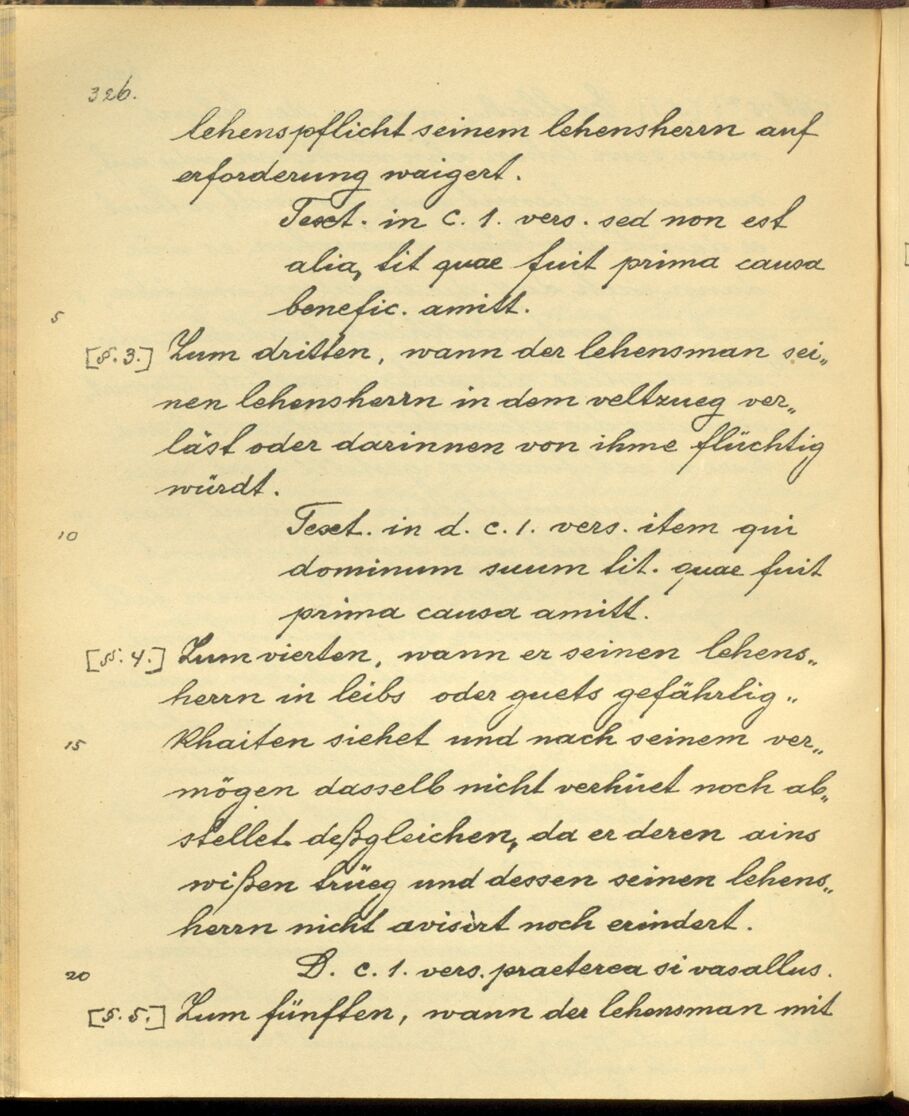 326.
lehenspflicht seinem lehensherrn auf
erforderung waigert.
Text. in c. 1. vers. sed non est
alia, tit quae fuit prima causa
5 benefic. amitt.
[§. 3.] Zum dritten, wann der lehensman sei„
nen lehensherrn in dem veltzueg ver„
läst oder darinnen von ihme flüchtig
würdt.
10 Text. in d. c. 1. vers. item qui
dominum suum tit. quae fuit
prima causa amitt.
[§. 4.] Zum vierten, wann er seinen lehens„
herrn in leibs oder guets gefährlig„
15 khaiten siehet und nach seinem ver„
mögen dasselb nicht verhüet noch ab„
stellet. deßgleichen, da er deren ains
wißen trüeg und dessen seinen lehens„
herrn nicht avisirt noch erindert.
20 D. c. 1. vers. praeterea si vasallus.
[§. 5.] Zum fünften, wann der lehensman mit